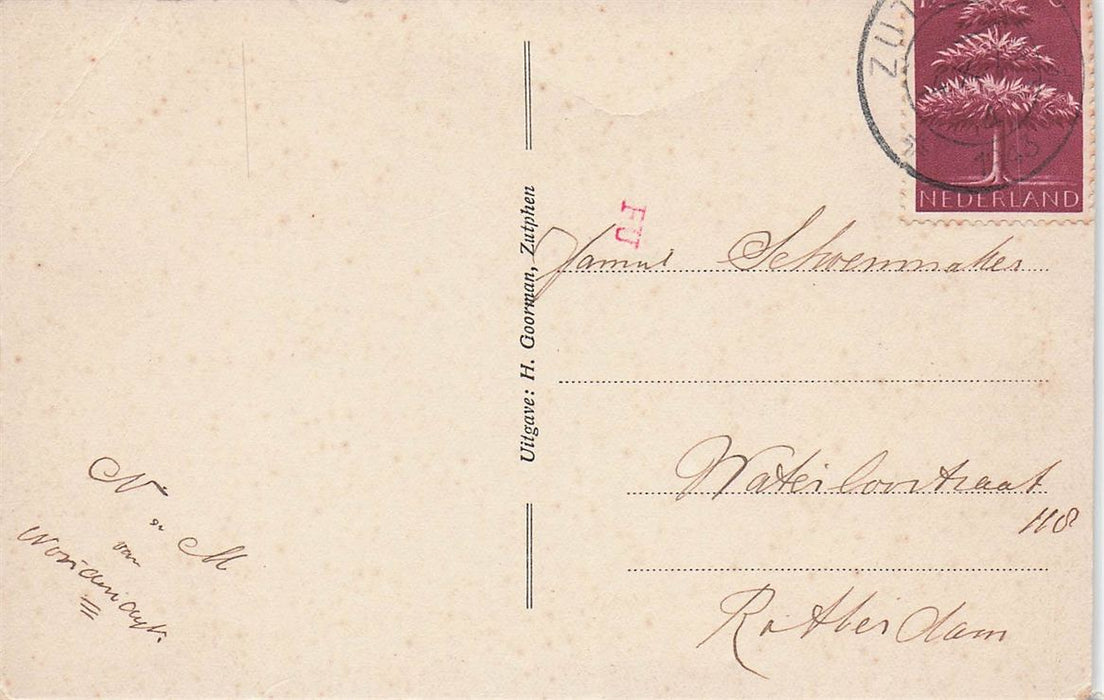 ZUT
NEDERLAND
FU
Uitgave: H. Goorman, Zutphen
Schoenmaker
Waterloostraat
118
Rotterdam
N
en M
van